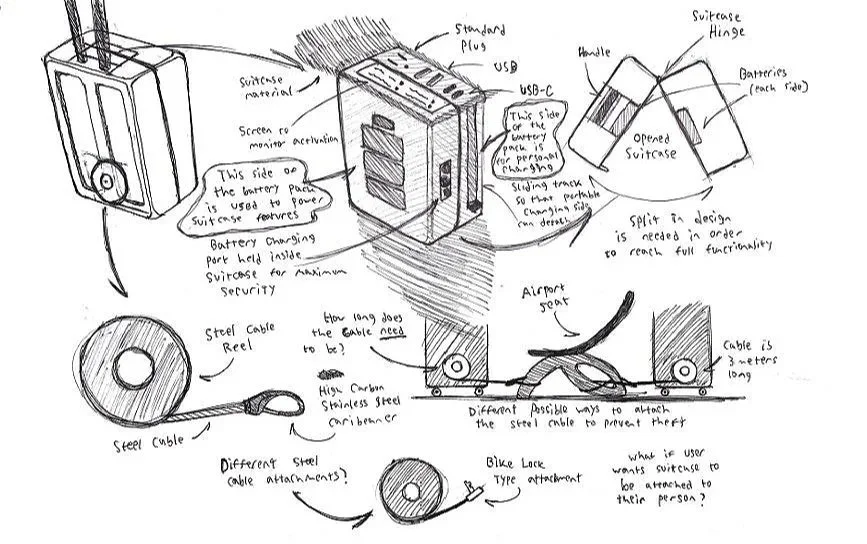 Standard
Plug
USB
USB-C
Suitcase
material
Screen to
monitor activation
This side of
the battery pack
is used to power
suitcase features
Battery Charging
port held inside
Suitcase for maximum
security
This side
of the
battery
pack is
for personal
charging
Sliding track
so that portable
Charging side
can detach
Suitcase
Hinge
Handle
Batteries
(each side)
Opened
Suitcase
Split in design
is needed in order
to reach full functionality
Steel Cable
Reel
Steel Cable
High Carbon
Stainless Steel
Caribeaner
How long does
the cable need
to be?
Airport
seat
Cable is
3 meters
long
Different possible ways to attach
the steel cable to prevent theft
Different Steel
Cable attachments?
Bike Lock
Type attachment
what if user
wants suitcase to
be attached to
their person?